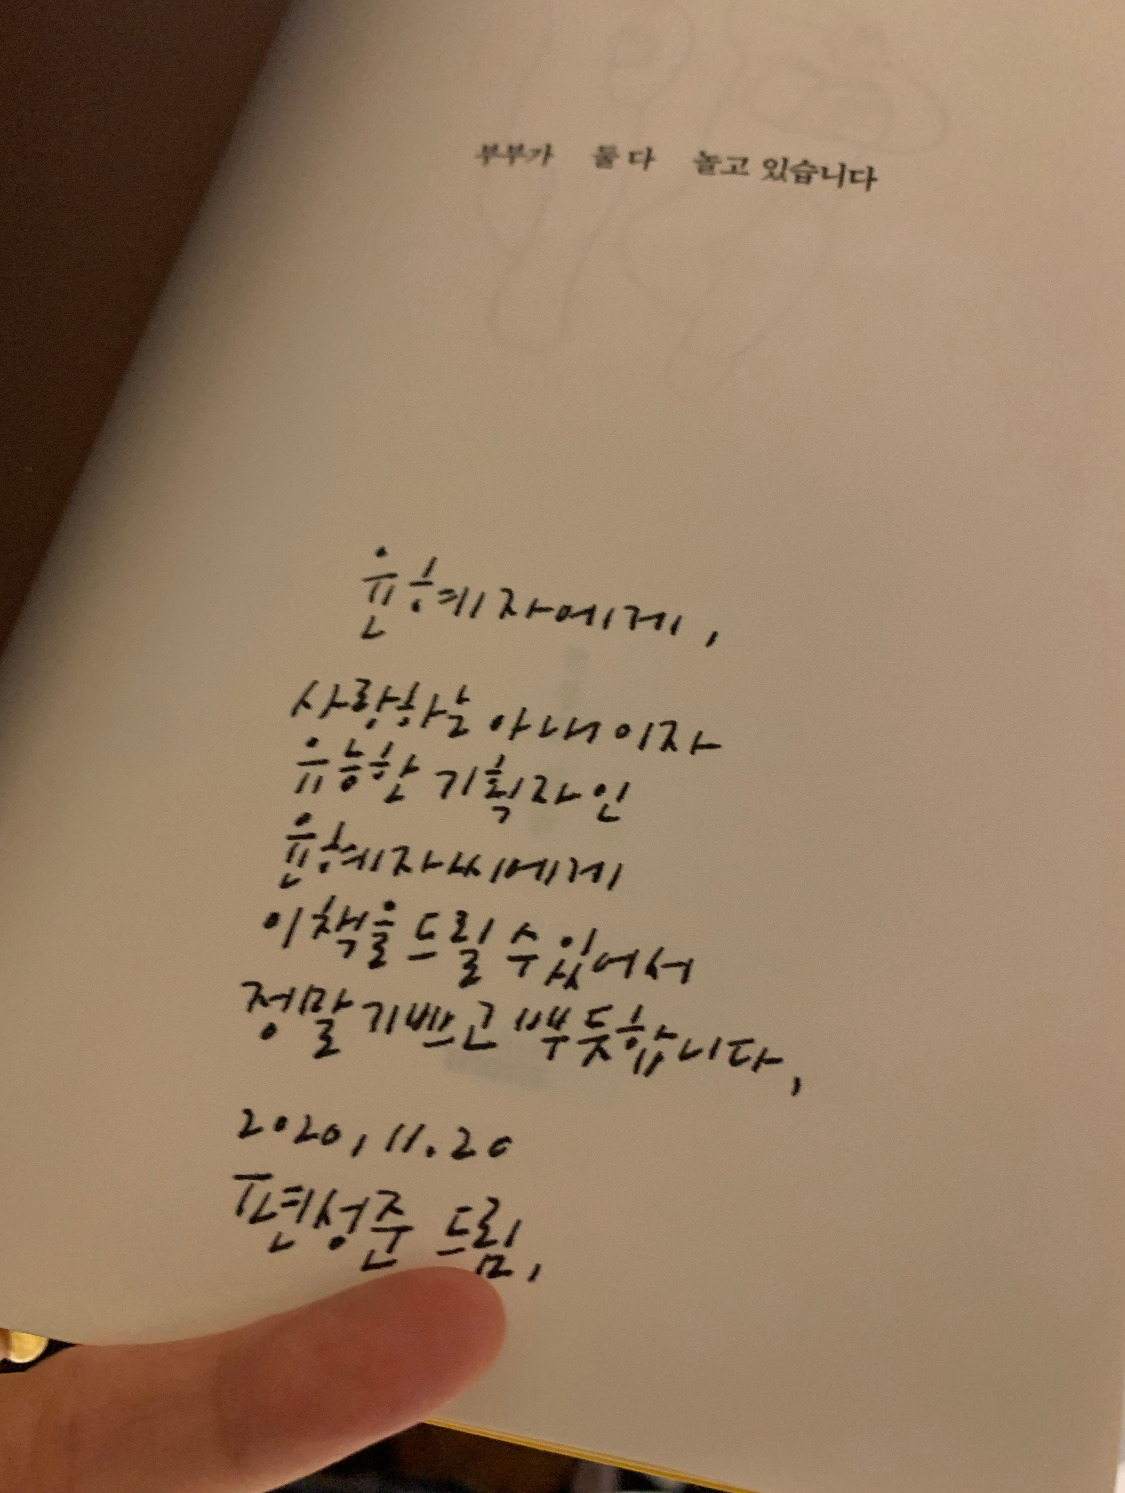 부부가 둘 다 놀고 있습니다
윤혜자에게,
사랑하는 아내이자
유능한 기획자인
윤혜자씨에게
이 책을 드릴 수 있어서
정말 기쁘고 뿌듯합니다,
2020, 11. 20
편성준 드림,